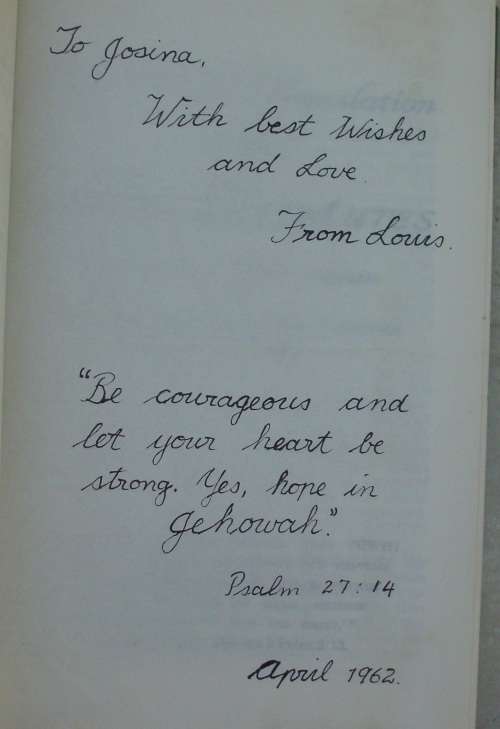 To Josina,
With best Wishes
and Love.
From Louis.
"Be courageous and
let your heart be
strong. Yes, hope in
Jehowah."
Psalm 27:14
April 1962.